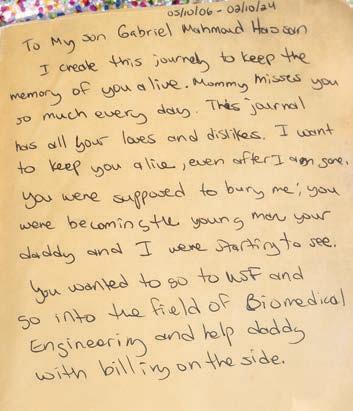 05/10/06 - 02/10/24
To My son Gabriel Mahmoud Hassan
I create this journey to keep the
memory of you alive. Mommy misses you
so much every day. This journal
has all your loves and dislikes. I want
to keep you alive, even after I am gone.
You were supposed to bury me; you
were becoming the young man your
daddy and I were starting to see.
You wanted to go to USF and
go into the field of Biomedical
Engineering and help daddy
with billing on the side.